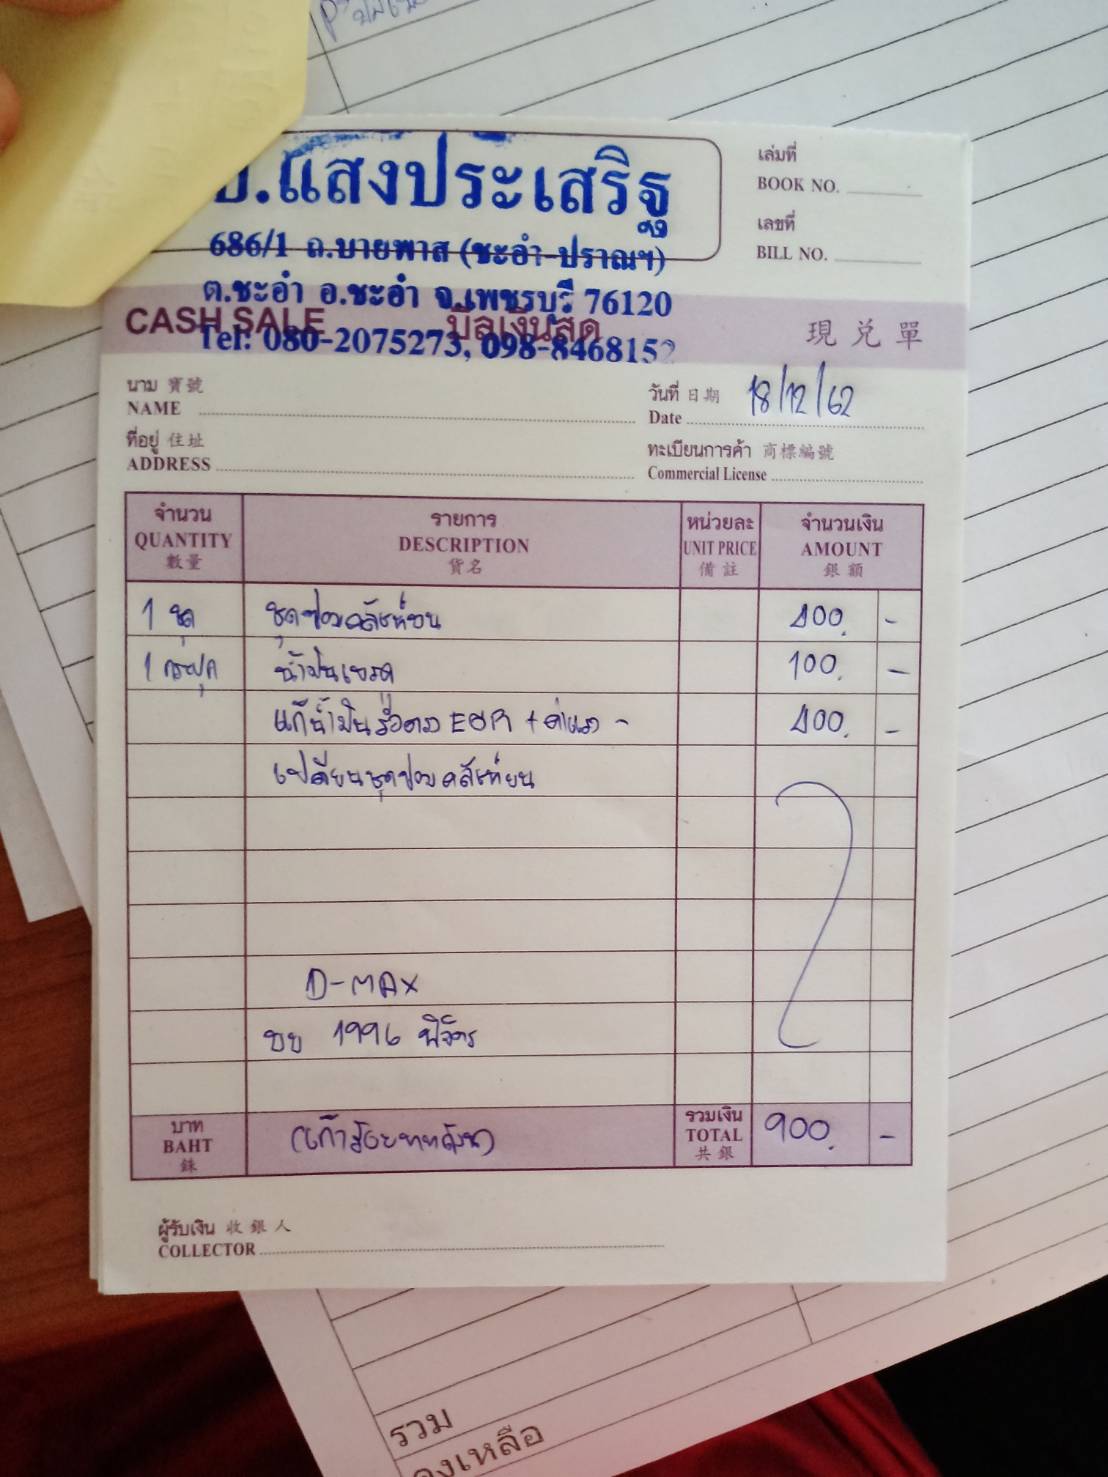 .แสงประเสริฐ
686/1 ถ.บายพาส (ชะอำ-ปราณฯ)
ต.ชะอำ อ.ชะอำ จ.เพชรบุรี 76120
Tel: 080-2075273, 098-8468152
เล่มที่
BOOK NO.
เลขที่
BILL NO.
CASH SALE บิลเงินสด 現兌單
นาม 寶號
NAME
วันที่ 日期 18/12/62
Date
ที่อยู่ 住址
ADDRESS
ทะเบียนการค้า 商標編號
Commercial License
จำนวน รายการ หน่วยละ จำนวนเงิน
QUANTITY DESCRIPTION UNIT PRICE AMOUNT
數量 貨名 備註 銀額
1 ชุด ชุดซ่อมคลัทช์บน 400. -
1 กระปุก น้ำมันเบรค 100. -
แก้น้ำมันรั่วตรง EGR + ค่าแรง - 400. -
เปลี่ยนชุดซ่อมคลัทช์บน
D-MAX
บบ 1996 พิจิตร
บาท
BAHT (เก้าร้อยบาทถ้วน)
銖
รวมเงิน
TOTAL 900. -
共銀
ผู้รับเงิน 收銀人
COLLECTOR
รวม
งเหลือ